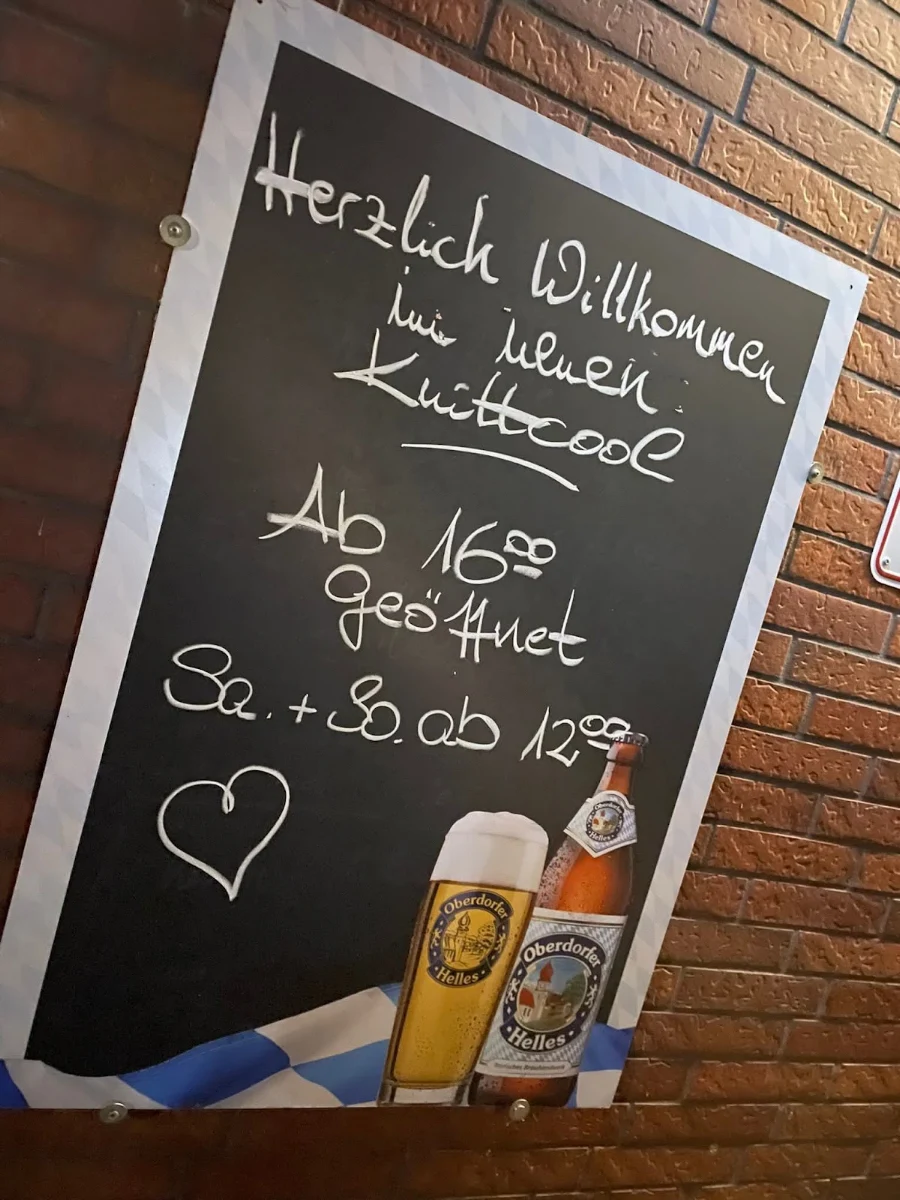 Herzlich Willkommen
im neuen
Knittcool
Ab 16⁰⁰
geöffnet
Sa. + So. ab 12⁰⁰
Oberdorfer
Helles
Oberdorfer
Helles
Oberdorfer
Helles